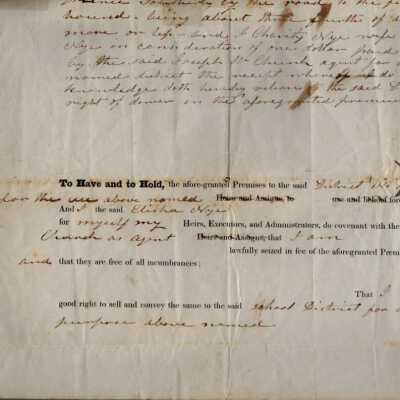 thence Southerly by the road to the
hundred - being about three fourths of a
more or less - And I Charity Nye wife
Nye in consideration of one dollar paid
by the said Joseph W Church agent for
named district the receipt whereof do
acknowledge doth hereby release the said
right of dower in the aforegranted premises
To Have and to Hold, the afore-granted Premises to the said District No
for the use above named Heirs and Assigns, to use and behoof for
And I the said Elisha Nye
for myself my Heirs, Executors, and Administrators, do covenant with the
Church as agent Heirs and Assigns, that I am
lawfully seized in fee of the aforegranted Premi
and that they are free of all incumbrances;
That I
good right to sell and convey the same to the said school District for
purpose above named